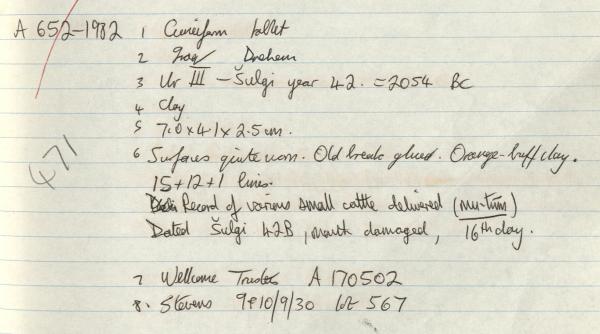 A 652-1982 1 Cuneiform tablet
2 Iraq Drehem
3 Ur III - Šulgi year 42. = 2054 BC
4 Clay
5 7.0 x 4.1 x 2.5 cm.
6 Surfaces quite worn. Old break glued. Orange-buff clay.
471
15 + 12 + 1 lines.
Record of various small cattle delivered (mu-túm)
Dated Šulgi 42B, month damaged, 16th day.
7 Wellcome Trustees A 170502
8. Stevens 9+10/9/30 lot 567